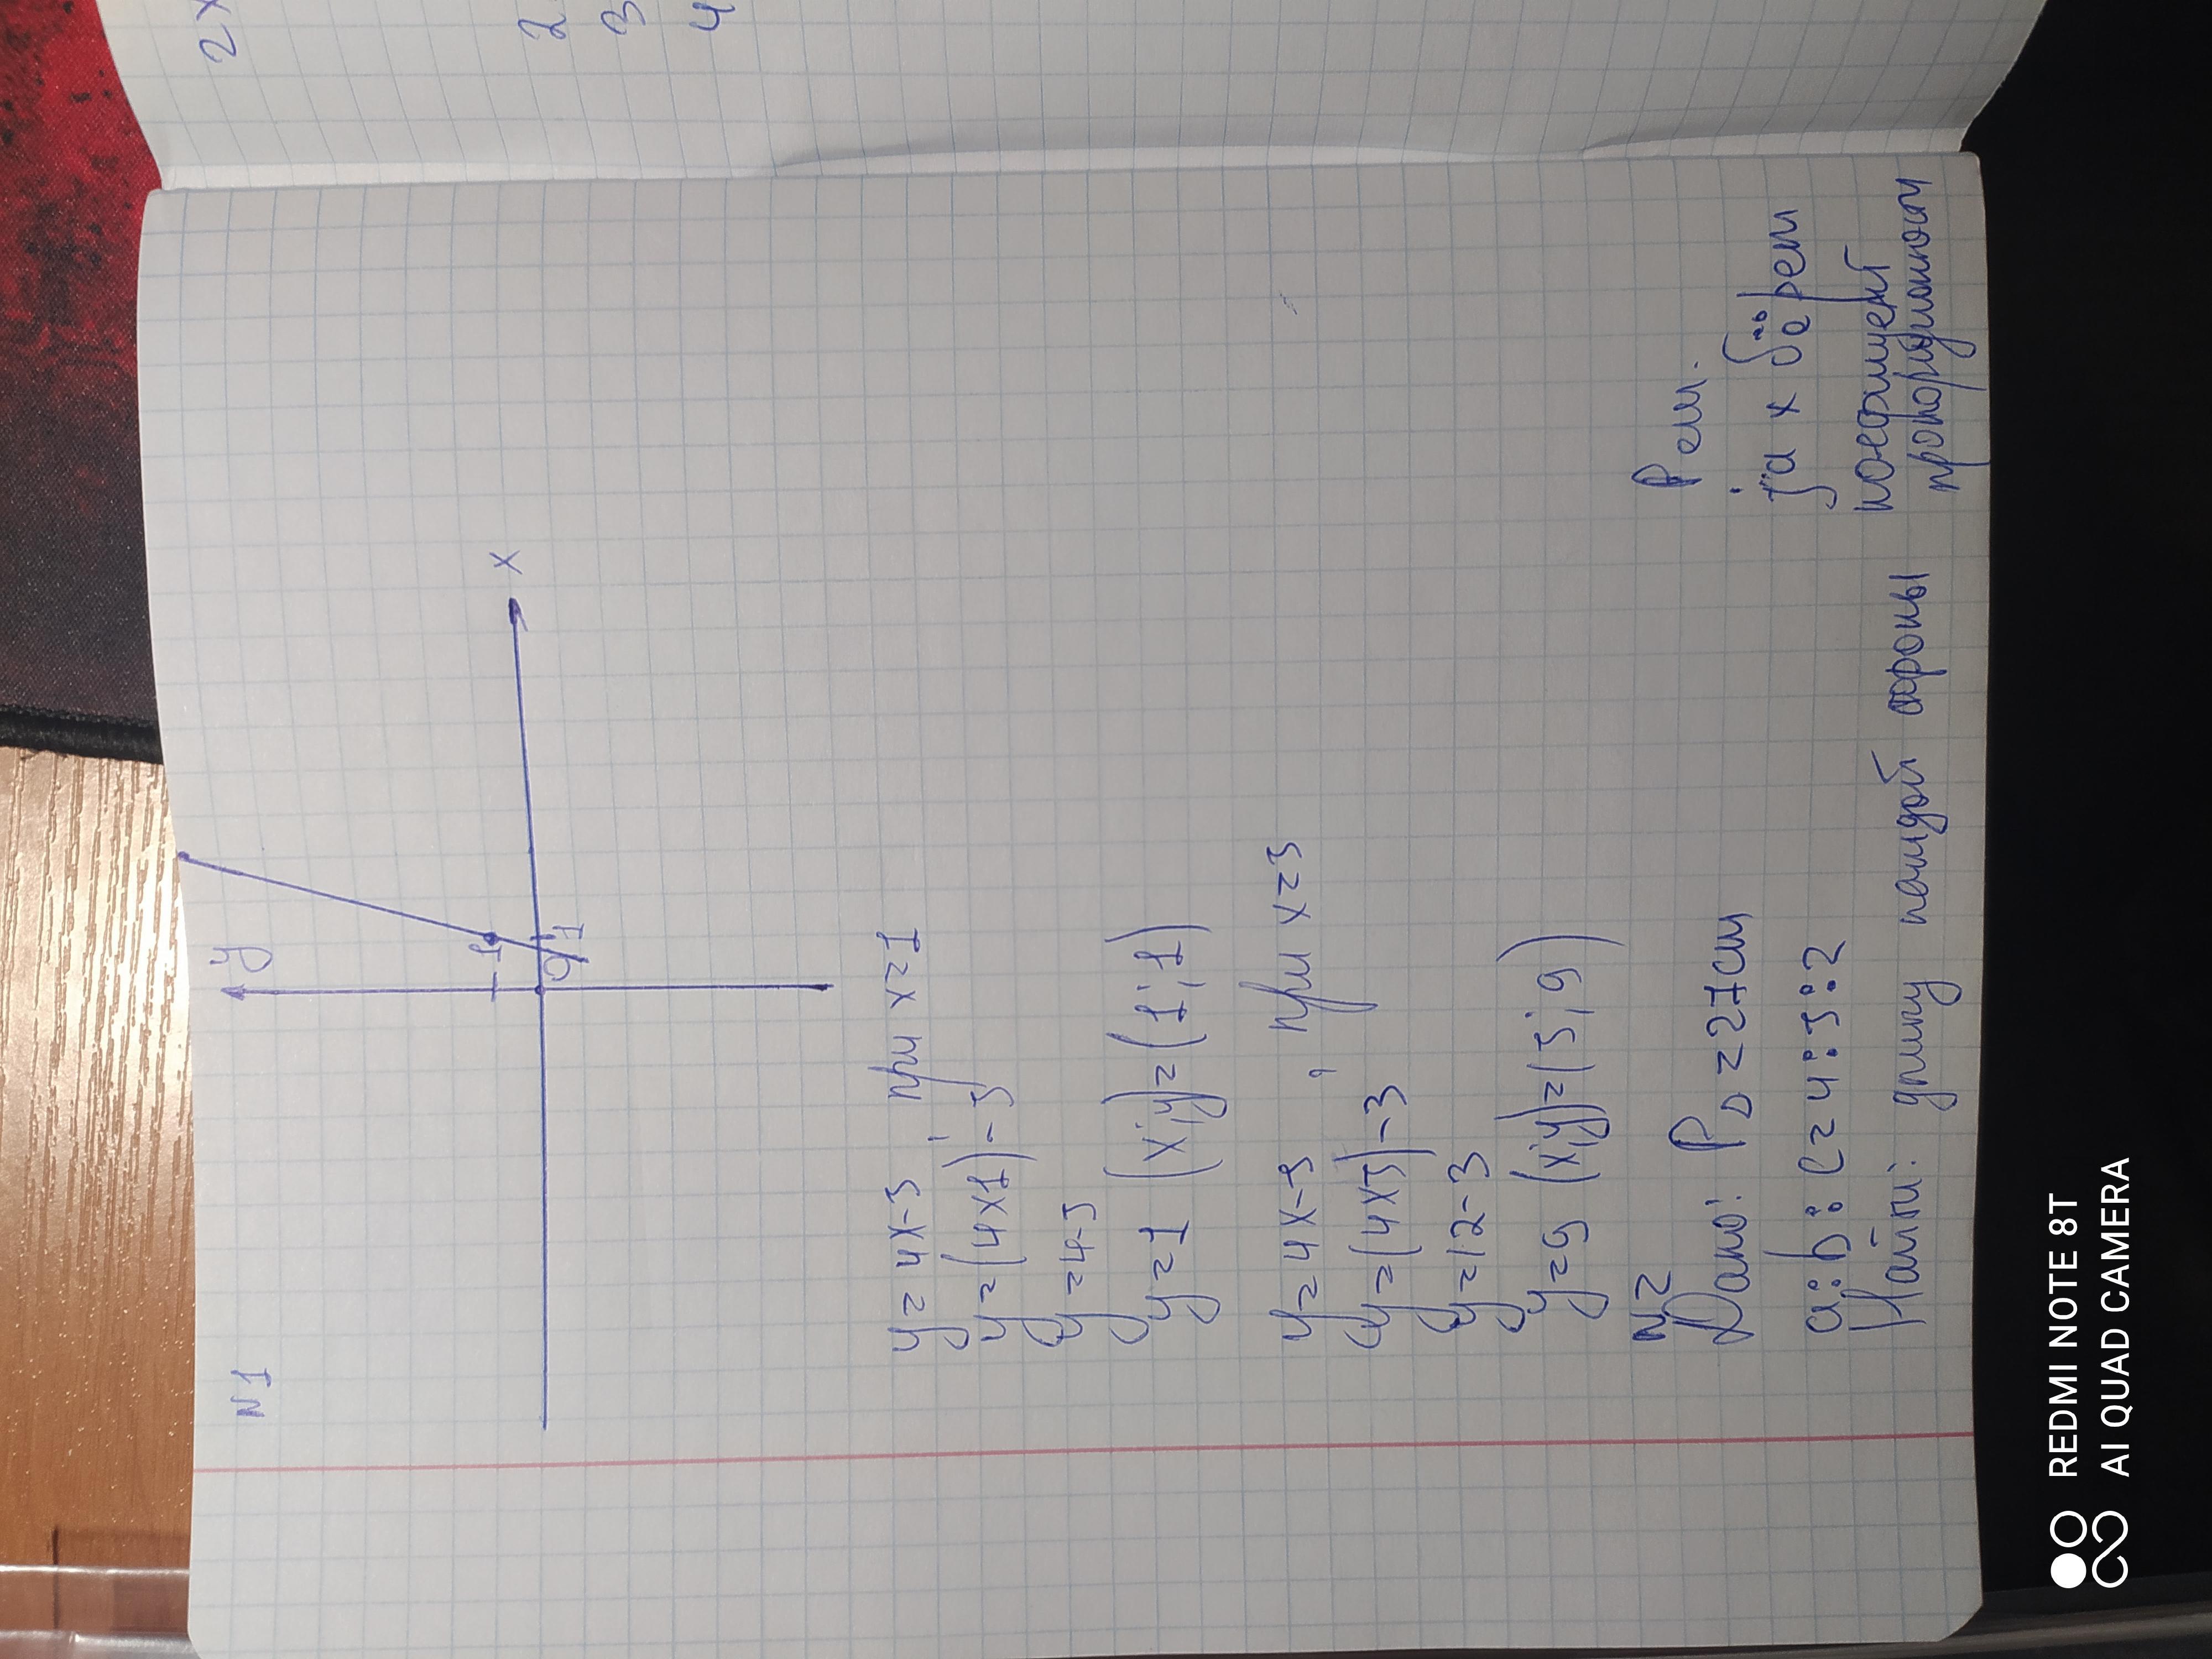 N1
y
x
1
0
1
y=4x-3, при x=1
y=(4x1)-3
y=4-3
y=1 (x;y)=(1;1)
y=4x-3, при x=3
y=(4x3)-3
y=12-3
y=9 (x;y)=(3;9)
N2
Дано: P△=27см
a:b:c=4:3:2
Найти: длину каждой стороны
Реш.
За x
коэффициент
пропорциональности
2x
2
3
4
REDMI NOTE 8T
AI QUAD CAMERA